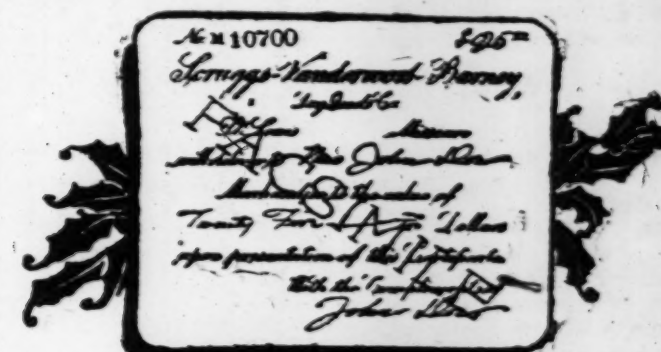 No. M 10700 $25 00
Scruggs-Vandervoort-Barney
Dry Goods Co
St. Louis Missouri
John Doe
Merchandise to the value of
Twenty Five Dollars
upon presentation of this Certificate
With the
John Doe